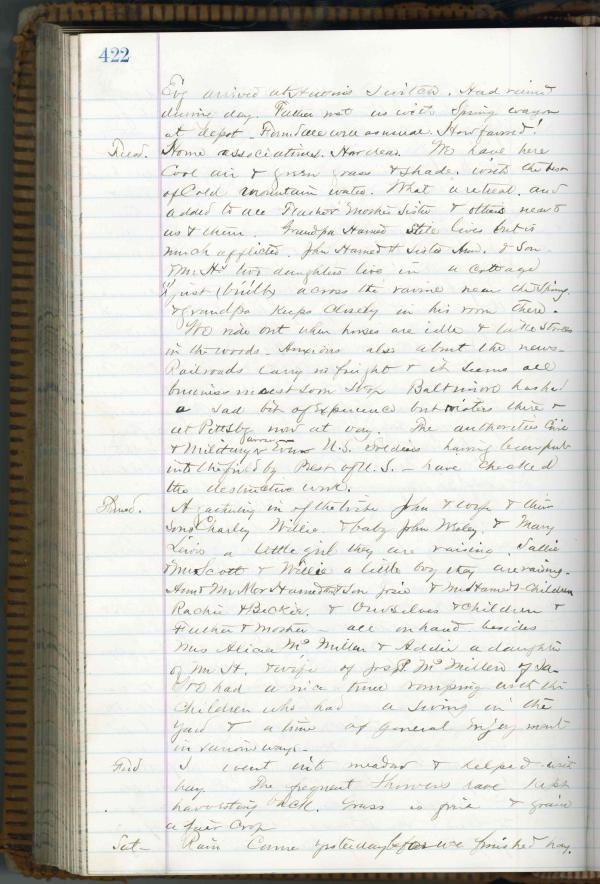 422
Evg arrived at Huron's Switch. Had rained
during day. Father met us with Spring wagon
at depot. Farmdale well as usual. How farmed!
Home associations. How dear. We have here
Cool air & green grass & shade. with the best
of Cold mountain water. What a retreat. and
added to all Father Mother Sister & others near to
us & them. Grandpa Hamed still lives but is
much afflicted. John Hamed & Sister Ann. & Son
& Mr. H's two daughters live in a cottage
just built across the ravine near the Spring.
& Grandpa keeps closely in his room there.
We ride out when horses are idle & take Strolls
in the woods. Anxious also about the news.
Railroads carry no freight & it seems all
business must soon stop Baltimore has had
a sad bit of Experience but rioters there &
at Pittsbg now at bay. The authorities Civil
& Military & Even U.S. Soldiers having been put
into the field by Prest of U.S. — have checked
the destructive work.
A gathering in of the tribe John & wife & their
sons Charley Willie & baby John Wesley & Mary
Lewis a little girl they are raising. Sallie
& Mr Scott & Willie a little boy they are raising.
Ann & Son Josie & Mr Hamed's Children
Rachie & Beckie. & Ourselves & Children &
Father & Mother — all on hand besides
Mrs Alicia McMillen & Addie a daughter
of Mr H. & wife of Jos P. McMillen of Ia—
We had a nice time romping with the
Children who had a Swing in the
Yard & a time of general Enjoyment
in various ways—
I went into meadow & helped with
hay. The frequent Showers have kept
harvesting back. Grass is fine & grain
a fair Crop
Sat— Rain Came yesterday before we finished hay.